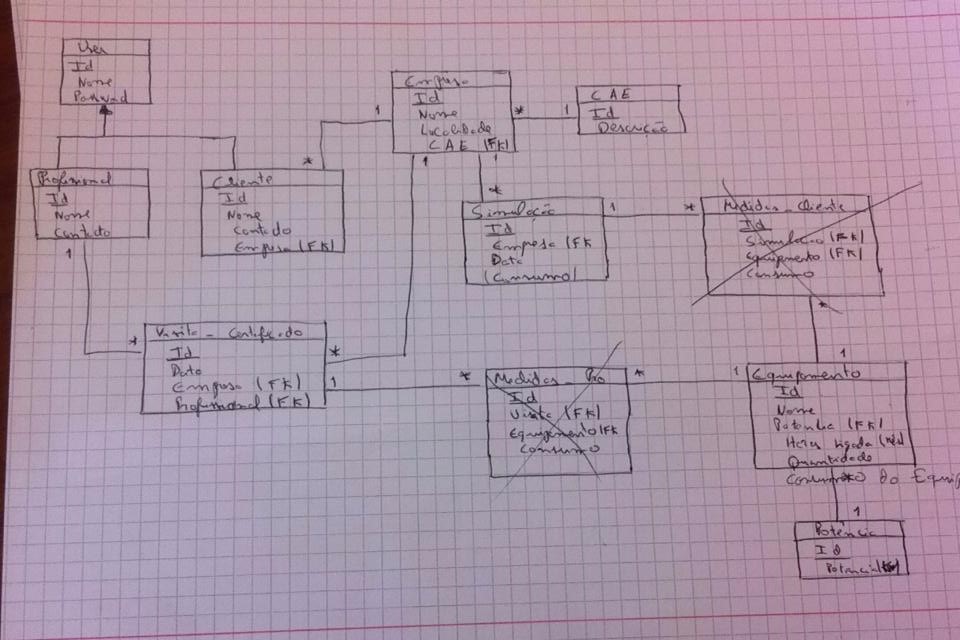 User
Id
Nome
Password
Empresa
Id
Nome
Localidade
CAE (FK)
1
*
1
CAE
Id
Descrição
1
1
*
Profissional
Id
Nome
Contacto
1
Cliente
Id
Nome
Contacto
Empresa (FK)
*
Simulação
Id
Empresa (FK
Data
(Consumo)
1
*
Medidas_Cliente
Id
Simulação (FK)
Equipamento (FK)
Consumo
*
1
*
Visita_Certificado
Id
Data
Empresa (FK)
Profissional (FK)
*
1
*
Medidas_Pro
Id
Visita (FK)
Equipamento (FK
Consumo
*
1
Equipamento
Id
Nome
Potencia (FK)
Horas ligada
Quantidade
Consumo do Equip
*
1
Potência
Id